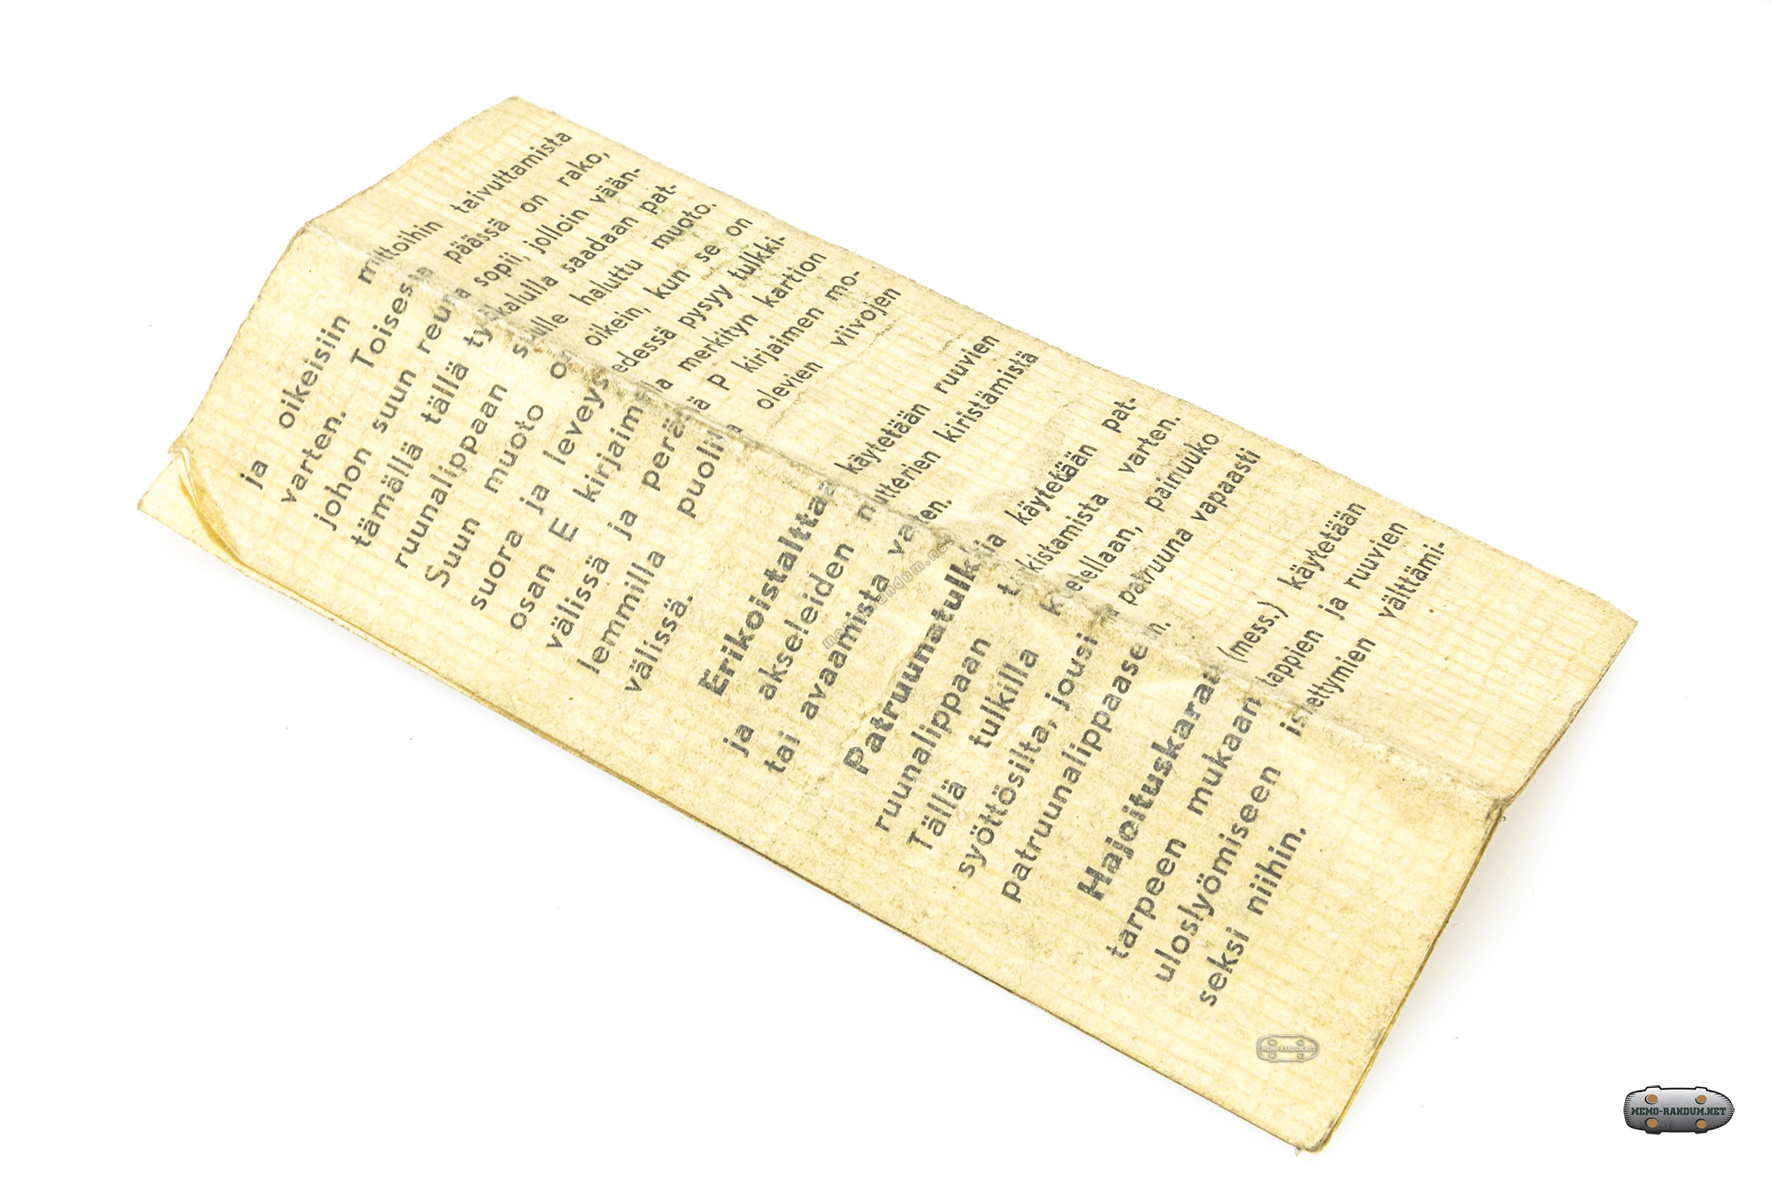 ja oikeisiin mittoihin taivuttamista
varten. Toisessa päässä on rako,
johon suun reuna sopii, jolloin vään-
tämällä tällä työkalulla saadaan pat-
ruunalippaan suulle haluttu muoto.
Suun muoto on oikein, kun se on
suora ja leveys edessä pysyy tulkki-
osan E kirjaimella merkityn kartion
välissä ja perässä P kirjaimen mo-
lemmilla puolilla olevien viivojen
välissä.
Erikoistalttaa käytetään ruuvien
ja akseleiden mutterien kiristämistä
tai avaamista varten.
Patruunatulkkia käytetään pat-
ruunalippaan tarkistamista varten.
Tällä tulkilla koetellaan, painuuko
syöttösilta, jousi ja patruuna vapaasti
patruunalippaaseen.
Hajoituskaraa (mess.) käytetään
tarpeen mukaan tappien ja ruuvien
uloslyömiseen istettymien välttämi-
seksi niihin.
memo-randum.net
MEMO-RANDUM.NET
MEMO-RANDUM.NET